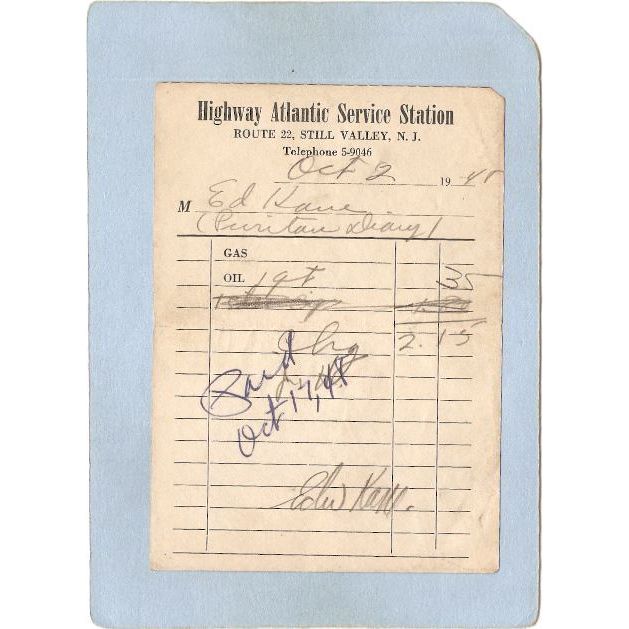 Highway Atlantic Service Station
ROUTE 22, STILL VALLEY, N. J.
Telephone 5-9046
Oct 2 19 48
M Ed Kane
(Puritan Diary)
GAS
OIL 1 qt 35
Chg 2.15
Paid
Oct 17, 48
Edw Kane.